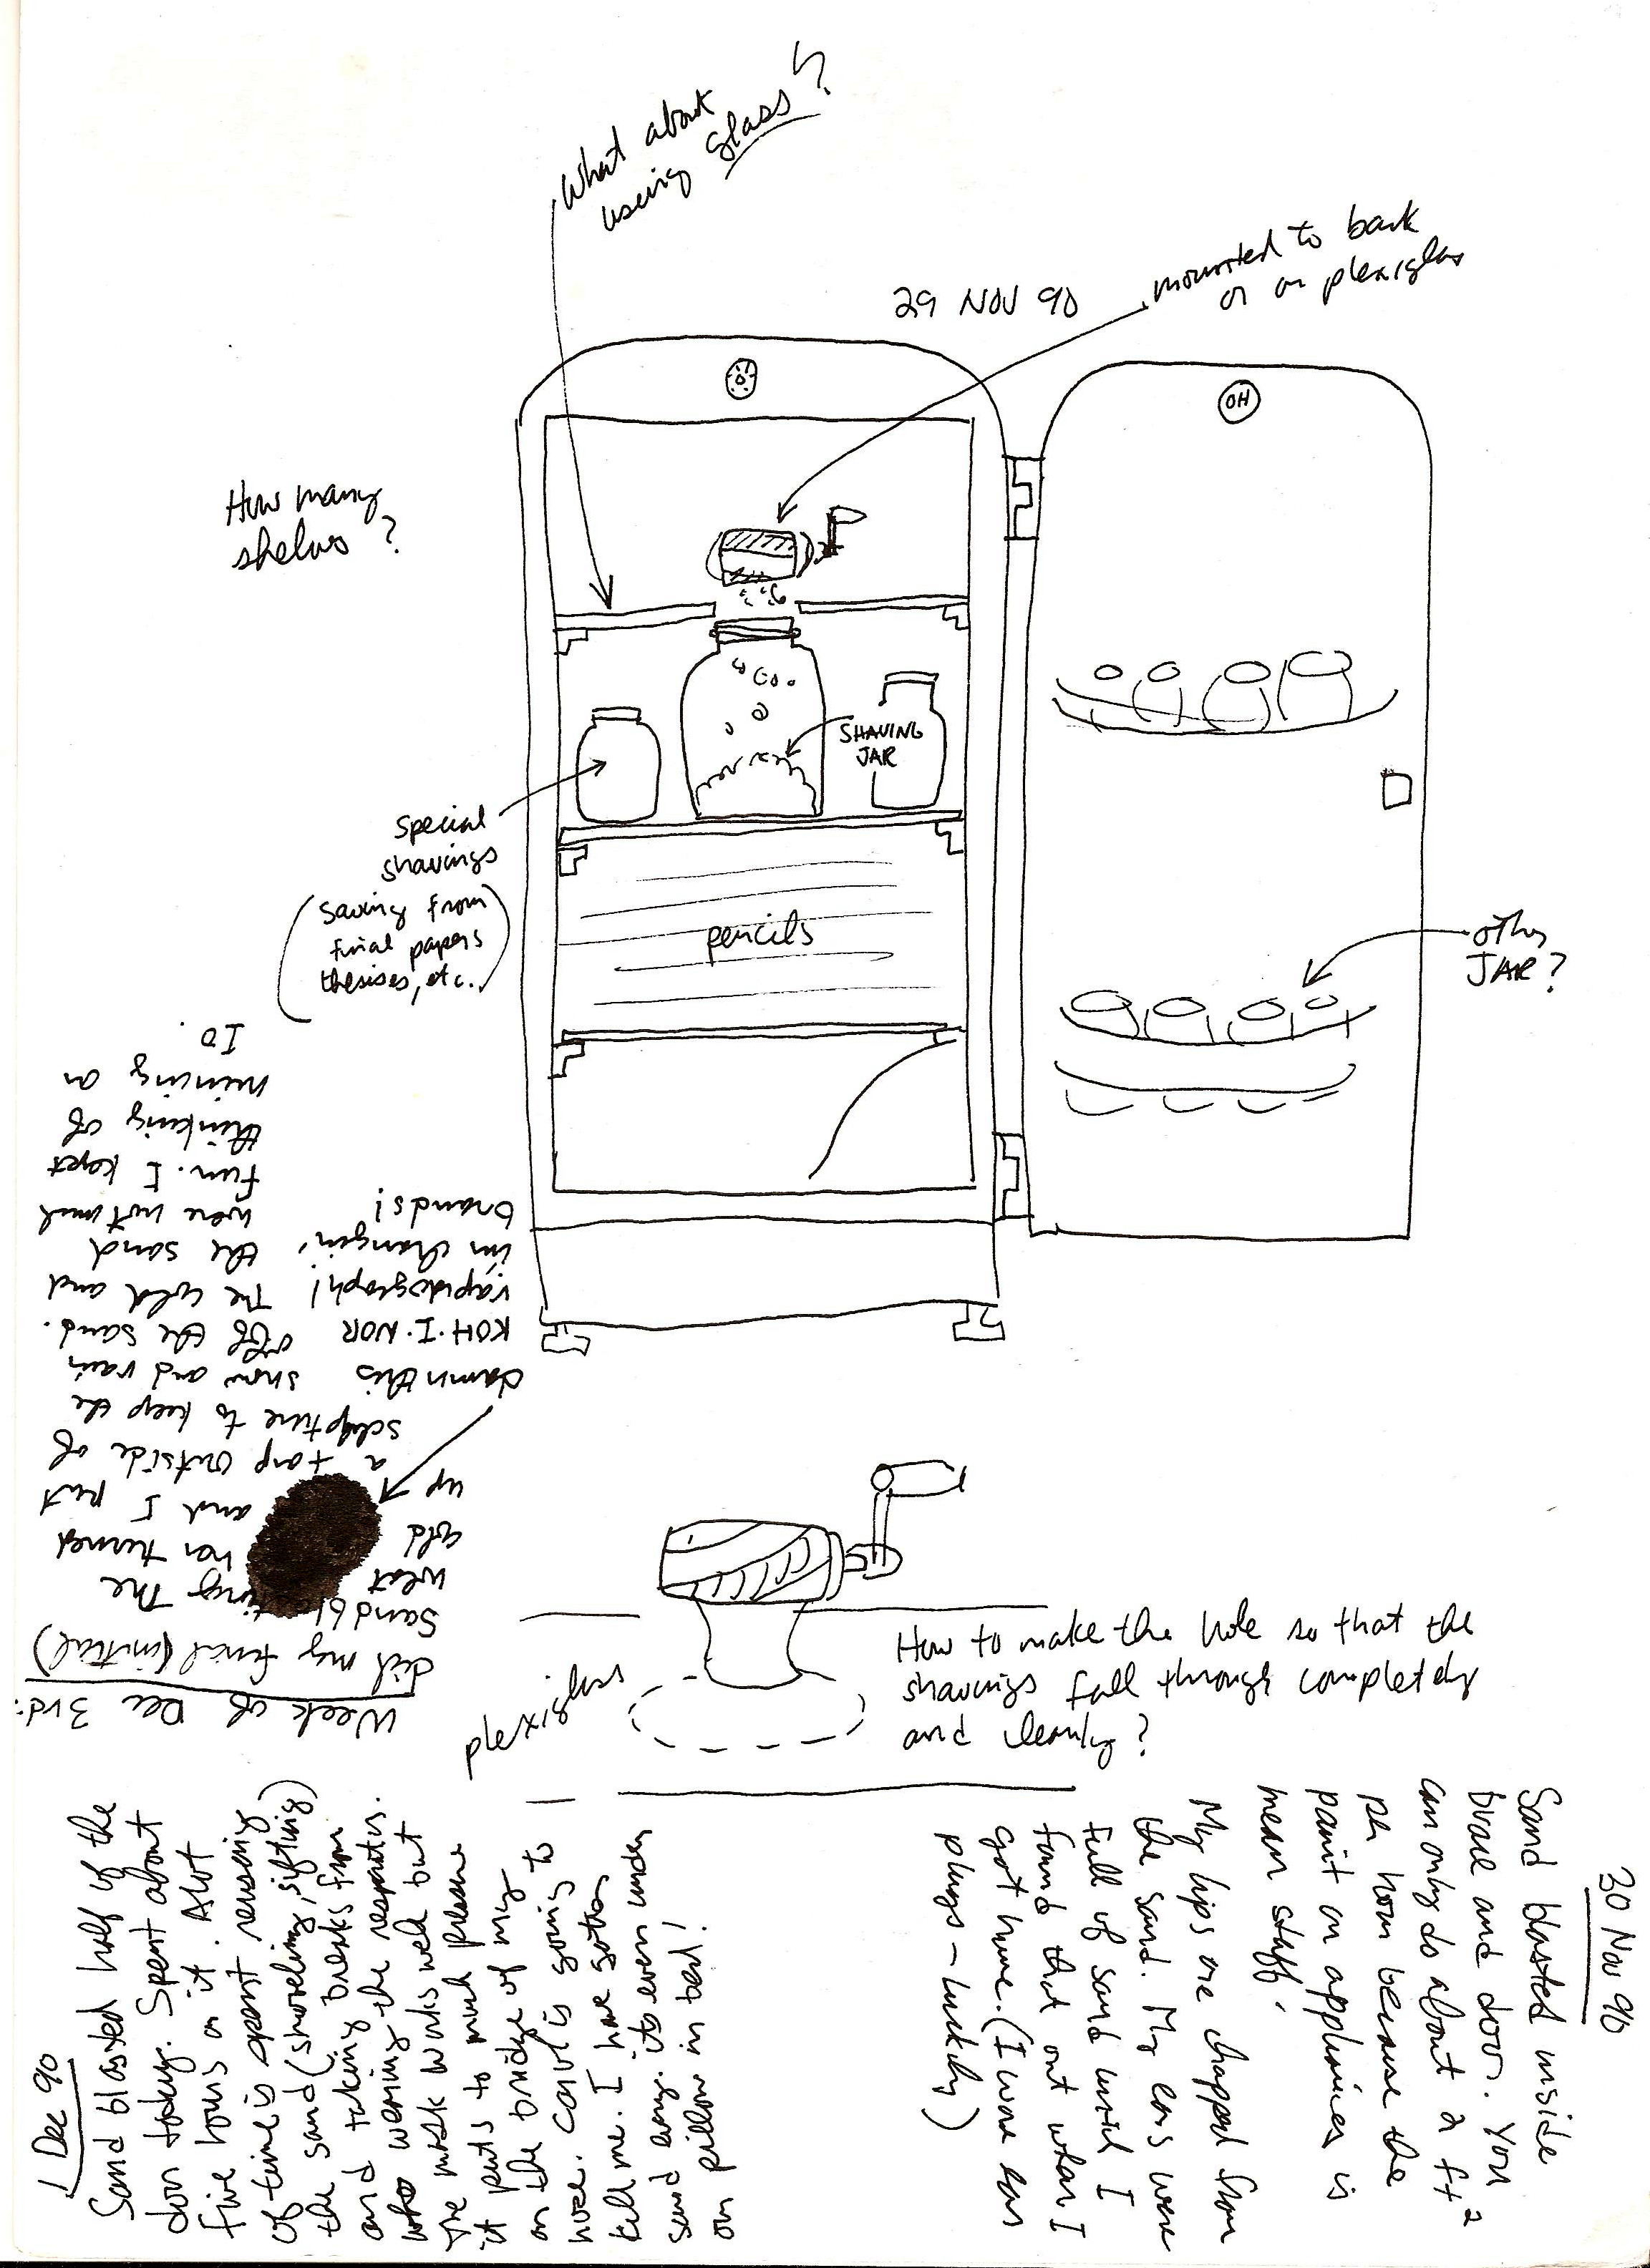 What about
using glass?
29 NOV 90
mounted to back
or on plexiglas
OH
How many
shelves?
SHAVING
JAR
special
shavings
(saving from
final papers
thesises, etc.)
pencils
other
JAR?
damn this
KOH·I·NOR
rapidograph!
i'm changin'
brands!
plexiglass
How to make the hole so that the
shavings fall through completely
and cleanly?
30 Nov 90
Sand blasted inside
brace and door. You
can only do about 2 ft²
per hour because the
paint on appliances is
mean stuff.
My lips are chapped from
the sand. My ears were
full of sand until I
found that out when I
got home. (I wore ear
plugs – luckily)
1 Dec 90
Sand blasted half of the
door today. Spent about
five hours on it. Alot
of time is spent reusing
the sand (shoveling, sifting)
and taking breaks from
wearing the respirator.
The mask works well but
it puts to much pressure
on the bridge of my
nose. Carl is going to
kill me. I have gotten
sand every. its even under
our pillow in bed!
Week of Dec 3rd:
did my final (initial)
The
weat has turned
cold and I put
up a tarp outside of
sculpture to keep the
snow and rain
off the sand.
The cold and
the sand
were not much
fun. I kept
thinking of
mining on
IO.